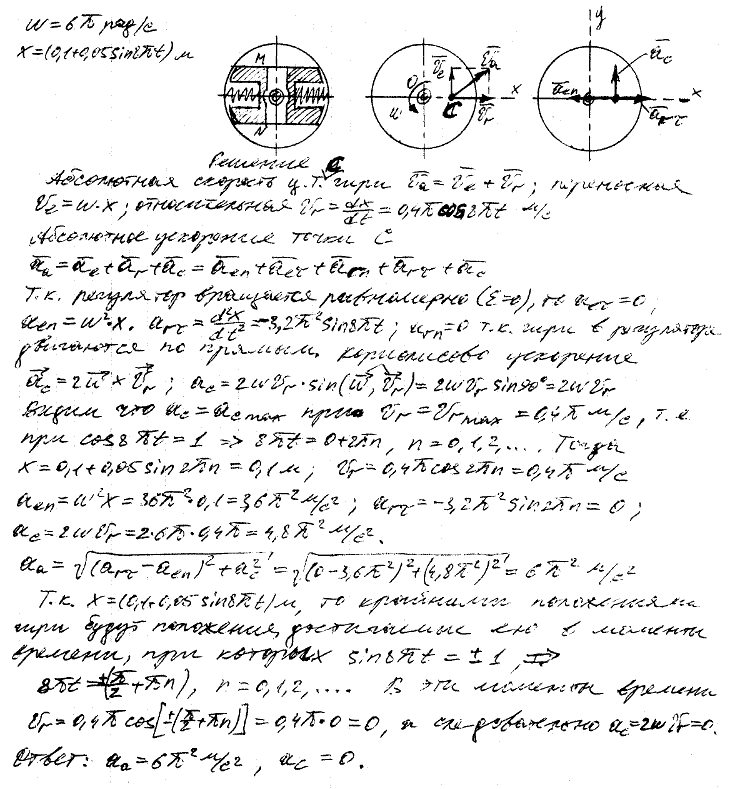 ω = 6π рад/с
x = (0,1+0,05 sin 8πt) м
M
N
O
ω
v̄e
v̄a
C
v̄r
x
y
āen
āc
ārτ
x
Решение
Абсолютная скорость ц.т. C гири v̄a = v̄e + v̄r; переносная
ve = ω·x; относительная vr = dx/dt = 0,4π cos 8πt м/с
Абсолютное ускорение точки C
āa = āe + ār + āc = āen + āeτ + ārn + ārτ + āc
Т.к. регулятор вращается равномерно (ε=0), то aeτ = 0;
aen = ω²·x. arτ = d²x/dt² = -3,2π² sin 8πt; arn = 0 т.к. гири в регуляторе
двигаются по прямым. Кориолисово ускорение
āc = 2ω̄ × v̄r; ac = 2ωvr·sin(ω̄, v̄r) = 2ωvr sin 90° = 2ωvr
Видим что ac = ac max при vr = vr max = 0,4π м/с, т.е.
при cos 8πt = 1 => 8πt = 0+2πn, n = 0,1,2,.... Тогда
x = 0,1+0,05 sin 2πn = 0,1 м; vr = 0,4π cos 2πn = 0,4π м/с
aen = ω²x = 36π²·0,1 = 3,6π² м/с²; arτ = -3,2π² sin 2πn = 0;
ac = 2ωvr = 2·6π·0,4π = 4,8π² м/с².
aa = √((arτ - aen)² + ac²) = √((0-3,6π²)² + (4,8π²)²) = 6π² м/с²
Т.к. x = (0,1+0,05 sin 8πt) м, то крайними положениями
гири будут положения, достигаемые ею в моменты
времени, при которых sin 8πt = ±1, =>
8πt = ±(π/2 + πn), n = 0,1,2,.... В эти моменты времени
vr = 0,4π cos[±(π/2 + πn)] = 0,4π·0 = 0, а следовательно ac = 2ωvr = 0.
Ответ: aa = 6π² м/с², ac = 0.